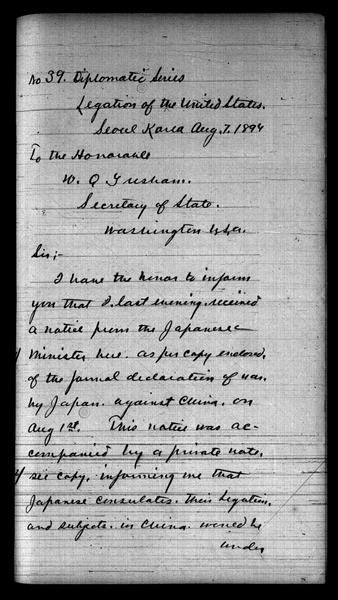 No 39. Diplomatic Series
Legation of the United States.
Seoul Korea Aug. 7. 1894
To the Honorable
W. Q Gresham.
Secretary of State.
Washington U.S.A.
Sir;-
I have the honor to inform
you that I last evening received
a notice from the Japanese
Minister here. as per copy enclosed,
of the formal declaration of war
by Japan. against China. on
Aug 1st. This notice was ac-
companied by a private note,
see copy, informing me that
Japanese consulates. their Legation,
and subjects. in China. would be
under